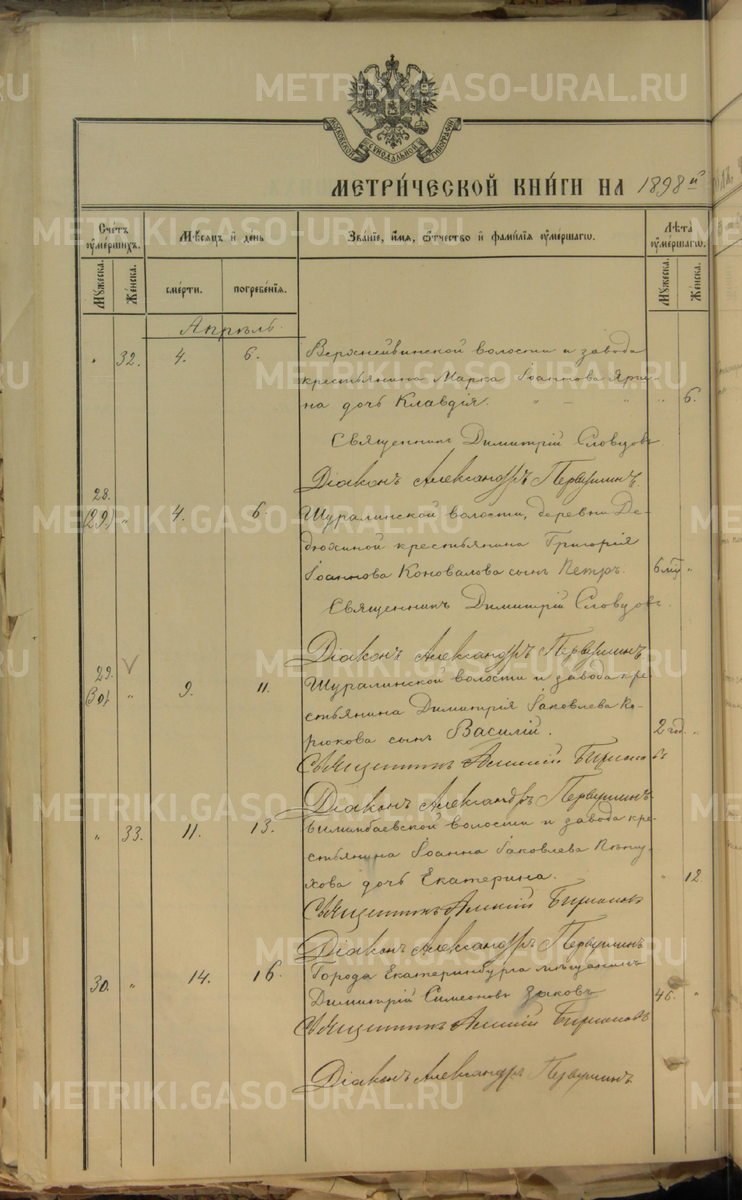 МОСКОВСКОЙ СѴНОДАЛЬНОЙ ТИПОГРАФІИ
МЕТРИ́ЧЕСКОЙ КНИ́ГИ НА 1898 й
Сче́тъ ѹме́ршихъ.
Мꙋжеска.
Же́нска.
Мѣ́сяцъ и де́нь
сме́рти.
погребе́нїѧ.
Зва́нїе, и́мѧ, ѻ҆́тчество и фами́лїѧ ѹме́ршагѡ.
Лѣ́та ѹме́ршагѡ.
Мꙋжеска.
Же́нска.
Апрѣль.
" 32. 4. 6. Верхнейвинской волости и завода
крестьянина Марка Іоаннова Яри-
на дочь Клавдія. " 6.
Священникъ Димитрій Словцовъ
Діаконъ Александръ Первушинъ
28.
(29.) " 4. 6. Шуралинской волости, деревни Де-
дюхиной крестьянина Григорія
Іоаннова Коновалова сынъ Петръ. 6 "
Священникъ Димитрій Словцовъ.
Діаконъ Александръ Первушинъ
29. V
(30). " 9. 11. Шуралинской волости и завода кре-
стьянина Димитрія Іаковлева Ко-
рюкова сынъ Василій. 2 год. "
Священникъ Алексій
Діаконъ Александръ Первушинъ
" 33. 11. 13. Билимбаевской волости и завода кре-
стьянина Іоанна Іаковлева Пѣту-
хова дочь Екатерина. " 12.
Священникъ Алексій
Діаконъ Александръ Первушинъ
30. " 14. 16. Города Екатеринбурга мѣщанинъ
Димитрій Симеоновъ 45. "
Священникъ Алексій
Діаконъ Александръ Первушинъ
METRIKI.GASO-URAL.RU